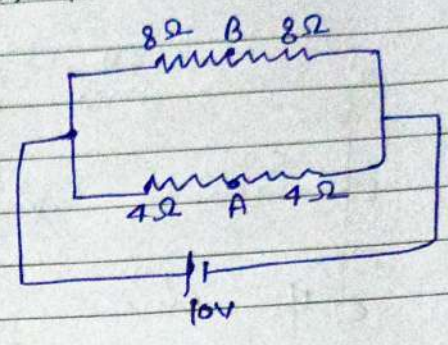 8Ω B 8Ω
4Ω A 4Ω
10V